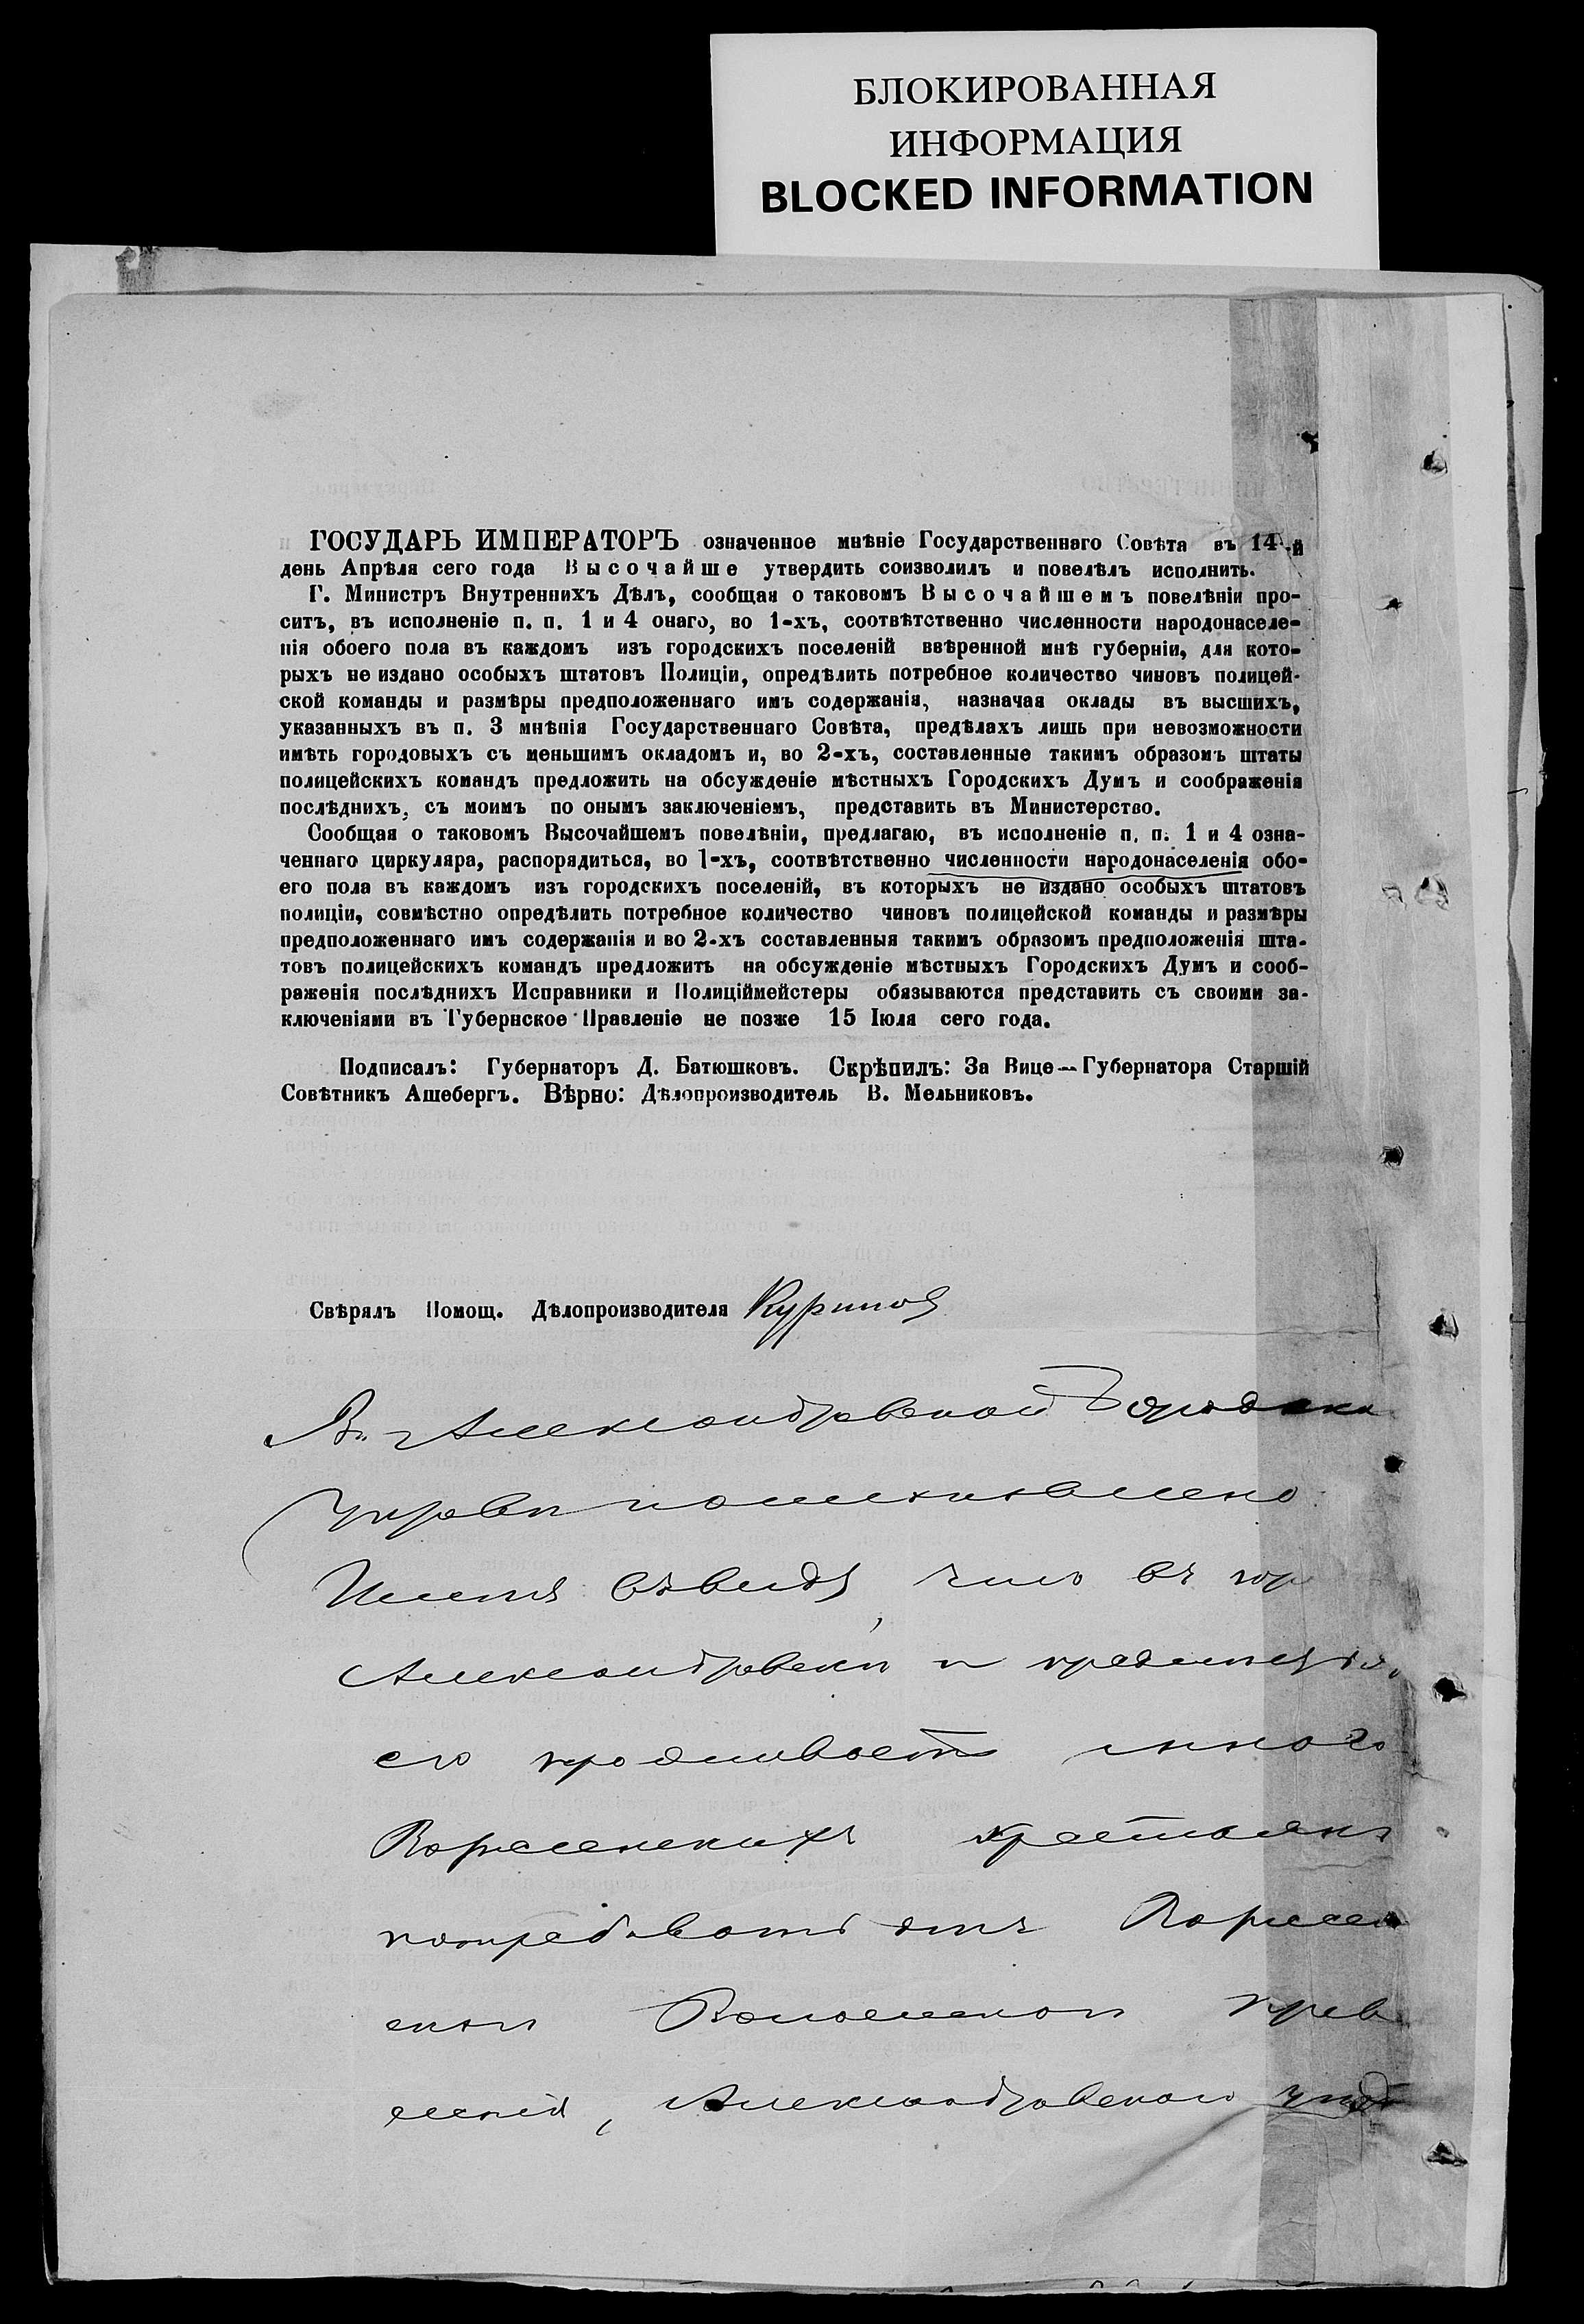 БЛОКИРОВАННАЯ
ИНФОРМАЦИЯ
BLOCKED INFORMATION
ГОСУДАРЬ ИМПЕРАТОРЪ означенное мнѣніе Государственнаго Совѣта въ 14-й
день Апрѣля сего года Высочайше утвердить соизволилъ и повелѣлъ исполнить.
Г. Министръ Внутреннихъ Дѣлъ, сообщая о таковомъ Высочайшемъ повелѣніи про-
ситъ, въ исполненіе п. п. 1 и 4 онаго, во 1-хъ, соотвѣтственно численности народонаселе-
нія обоего пола въ каждомъ изъ городскихъ поселеній ввѣренной мнѣ губерніи, для кото-
рыхъ не издано особыхъ штатовъ Полиціи, опредѣлить потребное количество чиновъ полицей-
ской команды и размѣры предположеннаго имъ содержанія, назначая оклады въ высшихъ,
указанныхъ въ п. 3 мнѣнія Государственнаго Совѣта, предѣлахъ лишь при невозможности
имѣть городовыхъ съ меньшимъ окладомъ и, во 2-хъ, составленные такимъ образомъ штаты
полицейскихъ командъ предложить на обсужденіе мѣстныхъ Городскихъ Думъ и соображенія
послѣднихъ, съ моимъ по онымъ заключеніемъ, представить въ Министерство.
Сообщая о таковомъ Высочайшемъ повелѣніи, предлагаю, въ исполненіе п. п. 1 и 4 озна-
ченнаго циркуляра, распорядиться, во 1-хъ, соотвѣтственно численности народонаселенія обо-
его пола въ каждомъ изъ городскихъ поселеній, въ которыхъ не издано особыхъ штатовъ
полиціи, совмѣстно опредѣлить потребное количество чиновъ полицейской команды и размѣры
предположеннаго имъ содержанія и во 2-хъ составленныя такимъ образомъ предположенія шта-
товъ полицейскихъ командъ предложить на обсужденіе мѣстныхъ Городскихъ Думъ и сооб-
раженія послѣднихъ Исправники и Полиціймейстеры обязываются представить съ своими за-
ключеніями въ Губернское Правленіе не позже 15 Іюля сего года.
Подписалъ: Губернаторъ Д. Батюшковъ. Скрѣпилъ: За Вице—Губернатора Старшій
Совѣтникъ Ашебергъ. Вѣрно: Дѣлопроизводитель В. Мельниковъ.
Свѣрялъ Помощ. Дѣлопроизводителя
Въ Александровской Городск
Управѣ постановлено
Имея въ виду, что въ гор
Александровскѣ и предместьѣ
его проживаетъ много
Вознесенскихъ крестьянъ
потребовать отъ Вознесен
скаго Волостнаго Прав
ленія, Александровскаго уѣзд